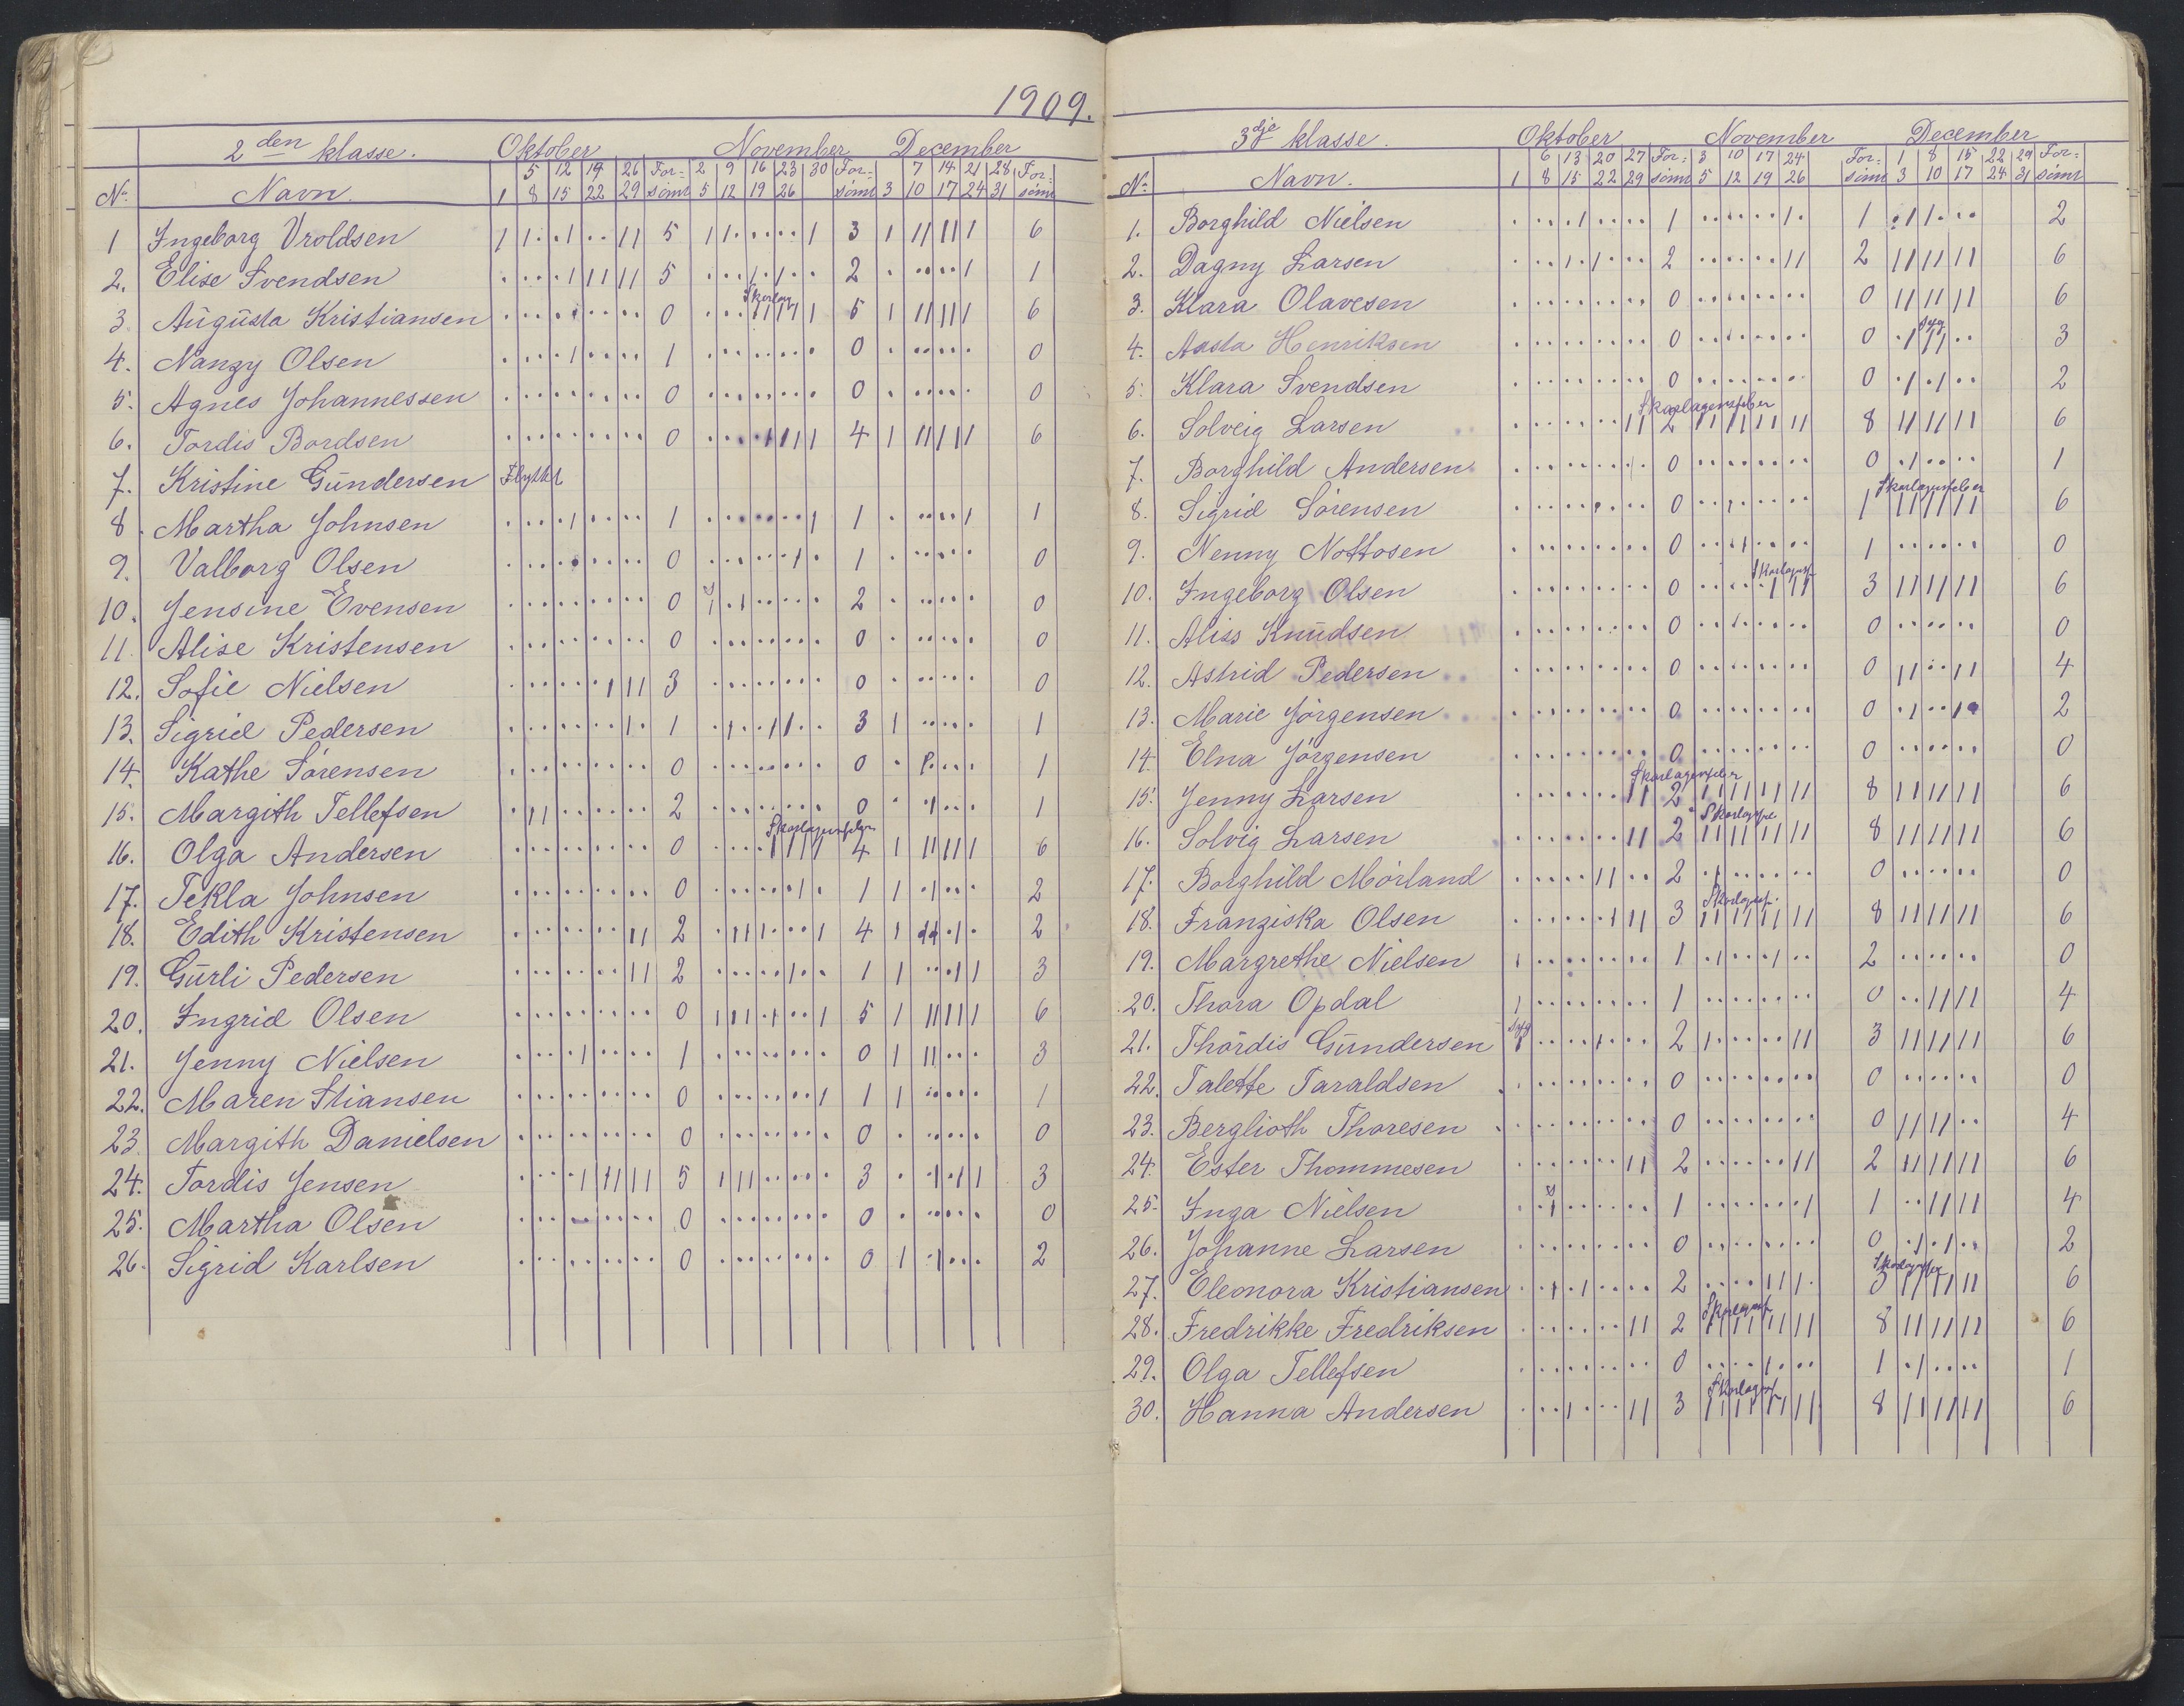 1909.
2den klasse. Oktober November December
5 12 19 26 For- 2 9 16 23 30 For- 7 14 21 28 For-
No Navn. 1 8 15 22 29 sömt 5 12 19 26 sömt 3 10 17 24 31 sömt
1 Ingeborg Vroldsen 5 3 6
2. Elise Svendsen 5 2 1
3 Augusta Kristiansen 0 Skarlag 5 6
4. Nanzy Olsen 1 0 0
5. Agnes Johannessen 0 0 0
6. Tordis Bordsen 0 4 6
7. Kristine Gundersen Flyttet
8. Martha Johnsen 1 1 1
9. Valborg Olsen 0 1 0
10. Jensine Evensen 0 2 0
11. Alise Kristensen 0 0 0
12. Sofie Nielsen 3 0 0
13. Sigrid Pedersen 1 3 1
14. Kathe Sörensen 0 0 1
15. Margith Tellefsen 2 0 1
16. Olga Andersen 0 Skarlagensfeber 4 6
17. Tekla Johnsen 0 1 2
18. Edith Kristensen 2 4 2
19. Gurli Pedersen 2 1 3
20. Ingrid Olsen 0 5 6
21. Jenny Nielsen 1 0 3
22. Maren Stiansen 0 1 1
23. Margith Danielsen 0 0 0
24. Tordis Jensen 5 3 3
25. Martha Olsen 0 0 0
26. Sigrid Karlsen 0 0 2
3dje klasse. Oktober November December
6 13 20 27 For- 3 10 17 24 For- 1 8 15 22 29 For-
No Navn. 1 8 15 22 29 sömt 5 12 19 26 sömt 3 10 17 24 31 sömt
1. Borghild Nielsen 1 1 2
2. Dagny Larsen 2 2 6
3. Klara Olavesen 0 0 6
4. Aasta Henriksen 0 0 syg 3
5. Klara Svendsen 0 0 2
6. Solveig Larsen 2 Skarlagensfeber 8 6
7. Borghild Andersen 0 0 1
8. Sigrid Sörensen 0 1 Skarlagensfeber 6
9. Nenny Nottosen 0 1 0
10. Ingeborg Olsen 0 Skarlagensf. 3 6
11. Aliss Knudsen 0 0 0
12. Astrid Pedersen 0 0 4
13. Marie Jörgensen 0 0 2
14. Elna Jörgensen 0 0 0
15. Jenny Larsen 2 Skarlagensfeber 8 6
16. Solvig Larsen 2 8 6
17. Borghild Mörland 2 0 0
18. Franziska Olsen 3 Skarlagensf. 8 6
19. Margrethe Nielsen 1 2 0
20. Thora Opdal 1 0 4
21. Thordis Gundersen Syg 2 3 6
22. Talette Taraldsen 0 0 0
23. Berglioth Thoresen 0 0 4
24. Ester Thommesen 2 2 6
25. Inga Nielsen 1 1 4
26. Johanne Larsen 0 0 2
27. Eleonora Kristiansen 2 3 6
28. Fredrikke Fredriksen 2 Skarlagensf. 8 6
29. Olga Tellefsen 0 1 1
30. Hanna Andersen 3 Skarlagsf 8 6